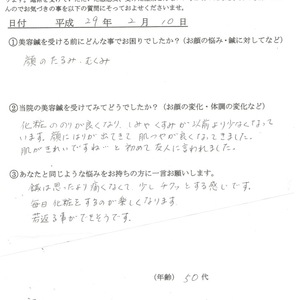 んでお気づきの事を以下の質問にそっておよせくださいませ。
日付 平成 29年 2月 10日
①美容鍼を受ける前にどんな事でお困りでしたか？（お顔の悩み・鍼に対してなど）
顔のたるみ、むくみ
②当院の美容鍼を受けてみてどうでしたか？（お顔の変化・体調の変化など）
化粧ののりが良くなり、しみやくすみが以前より少なくなって
います。顔にはりが出てきて肌つやが良くなってきました。
肌がきれいですねぃと初めて友人に言われました。
③あなたと同じような悩みをお持ちの方に一言お願いします。
鍼は思ったより痛くなくて、少しチクッとする感じです。
毎日化粧をするのが楽しくなります。
若返る事ができそうです。
（年齢） 50代